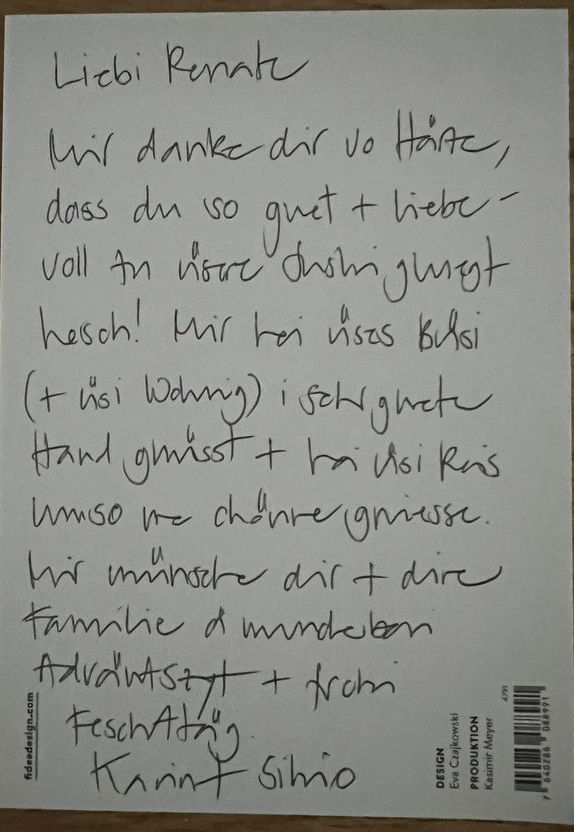 Liebi Renate
Mir danke dir vo Härze,
dass du so guet + liebe-
voll zu üsere gluegt
hesch! Mir hei üses Büsi
(+ üsi Wohnig) i sehr guete
Händ gwüsst + hei üsi Reis
umso me chönne gniesse.
Mir wünsche dir + dire
Familie e wunderbari
Adväntszyt + frohi
Feschttäg.
Karin + Silvio
fideadesign.com
DESIGN
Eva Czajkowski
PRODUKTION
Kasimir Meyer
4791